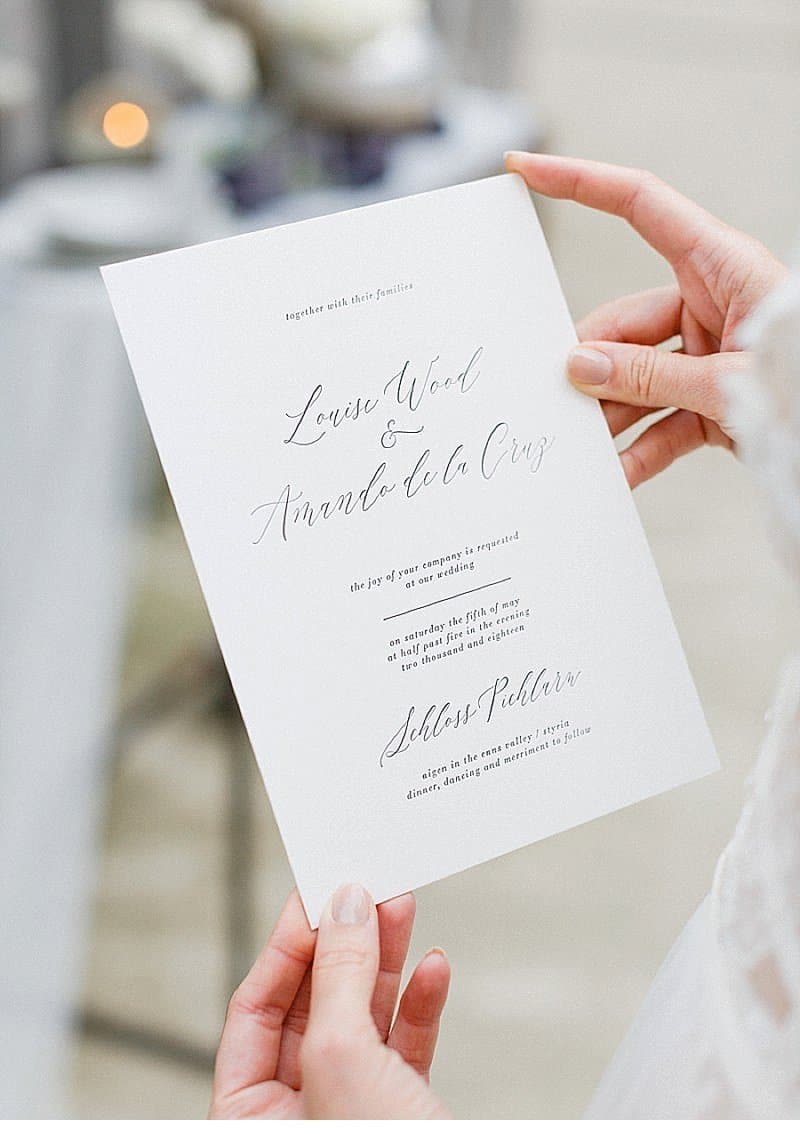 together with their families
Louise Wood
&
Amando de la Cruz
the joy of your company is requested
at our wedding
on saturday the fifth of may
at half past five in the evening
two thousand and eighteen
Schloss Pichlarn
aigen in the enns valley / styria
dinner, dancing and merriment to follow